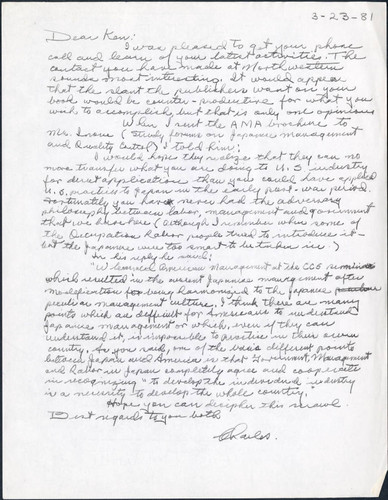 3-23-81
Dear Ken:
I was pleased to get your phone
call and learn of your latest activities. The
contact you have made at Northwestern
sounds most interesting. It would appear
that the slant the publishers want on your
book would be counter-productive for what you
wish to accomplish but that is only one opinion.
When I sent the ANA brochure to
Mr. (Study forums on Japanese management
and Quality Control) I told him:
I would hope they realize that they can no
more transfer what you are doing to U.S. industry
for direct application than you could have applied
U.S. practice to Japan in the early post-war period.
Fortunately you have never had the adversary
philosophy between labor, management and government
that we have here (although I remember when some of
the Occupation Labor people tried to introduce it -
but the Japanese were too smart to be taken in.)
In his reply he said:
"We learned American Management at the CCS seminar
which resulted in the present Japanese management after
modification for being harmonized to the Japanese
peculiar management culture, I think there are many
points which are difficult for Americans to understand
Japanese management or which, even if they can
understand it, is impossible to practice in their own
country. As you said, one of the basic different points
between Japan and America is that Government, Management
and Labor in Japan completely agree and cooperate
in recognizing "to develop the individual industry
is a necessity to develop the whole country."
Hope you can decipher this scrawl.
Best regards to you both
Charles.